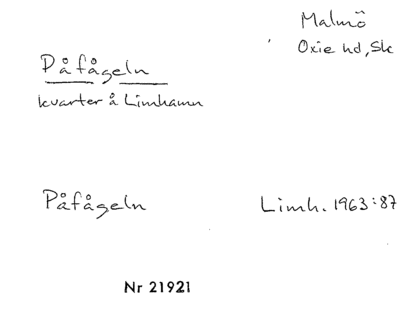 Malmö
Oxie hd, Sk
Påfågeln
kvarter å Limhamn
Påfågeln
Limh. 1963:87
Nr 21921